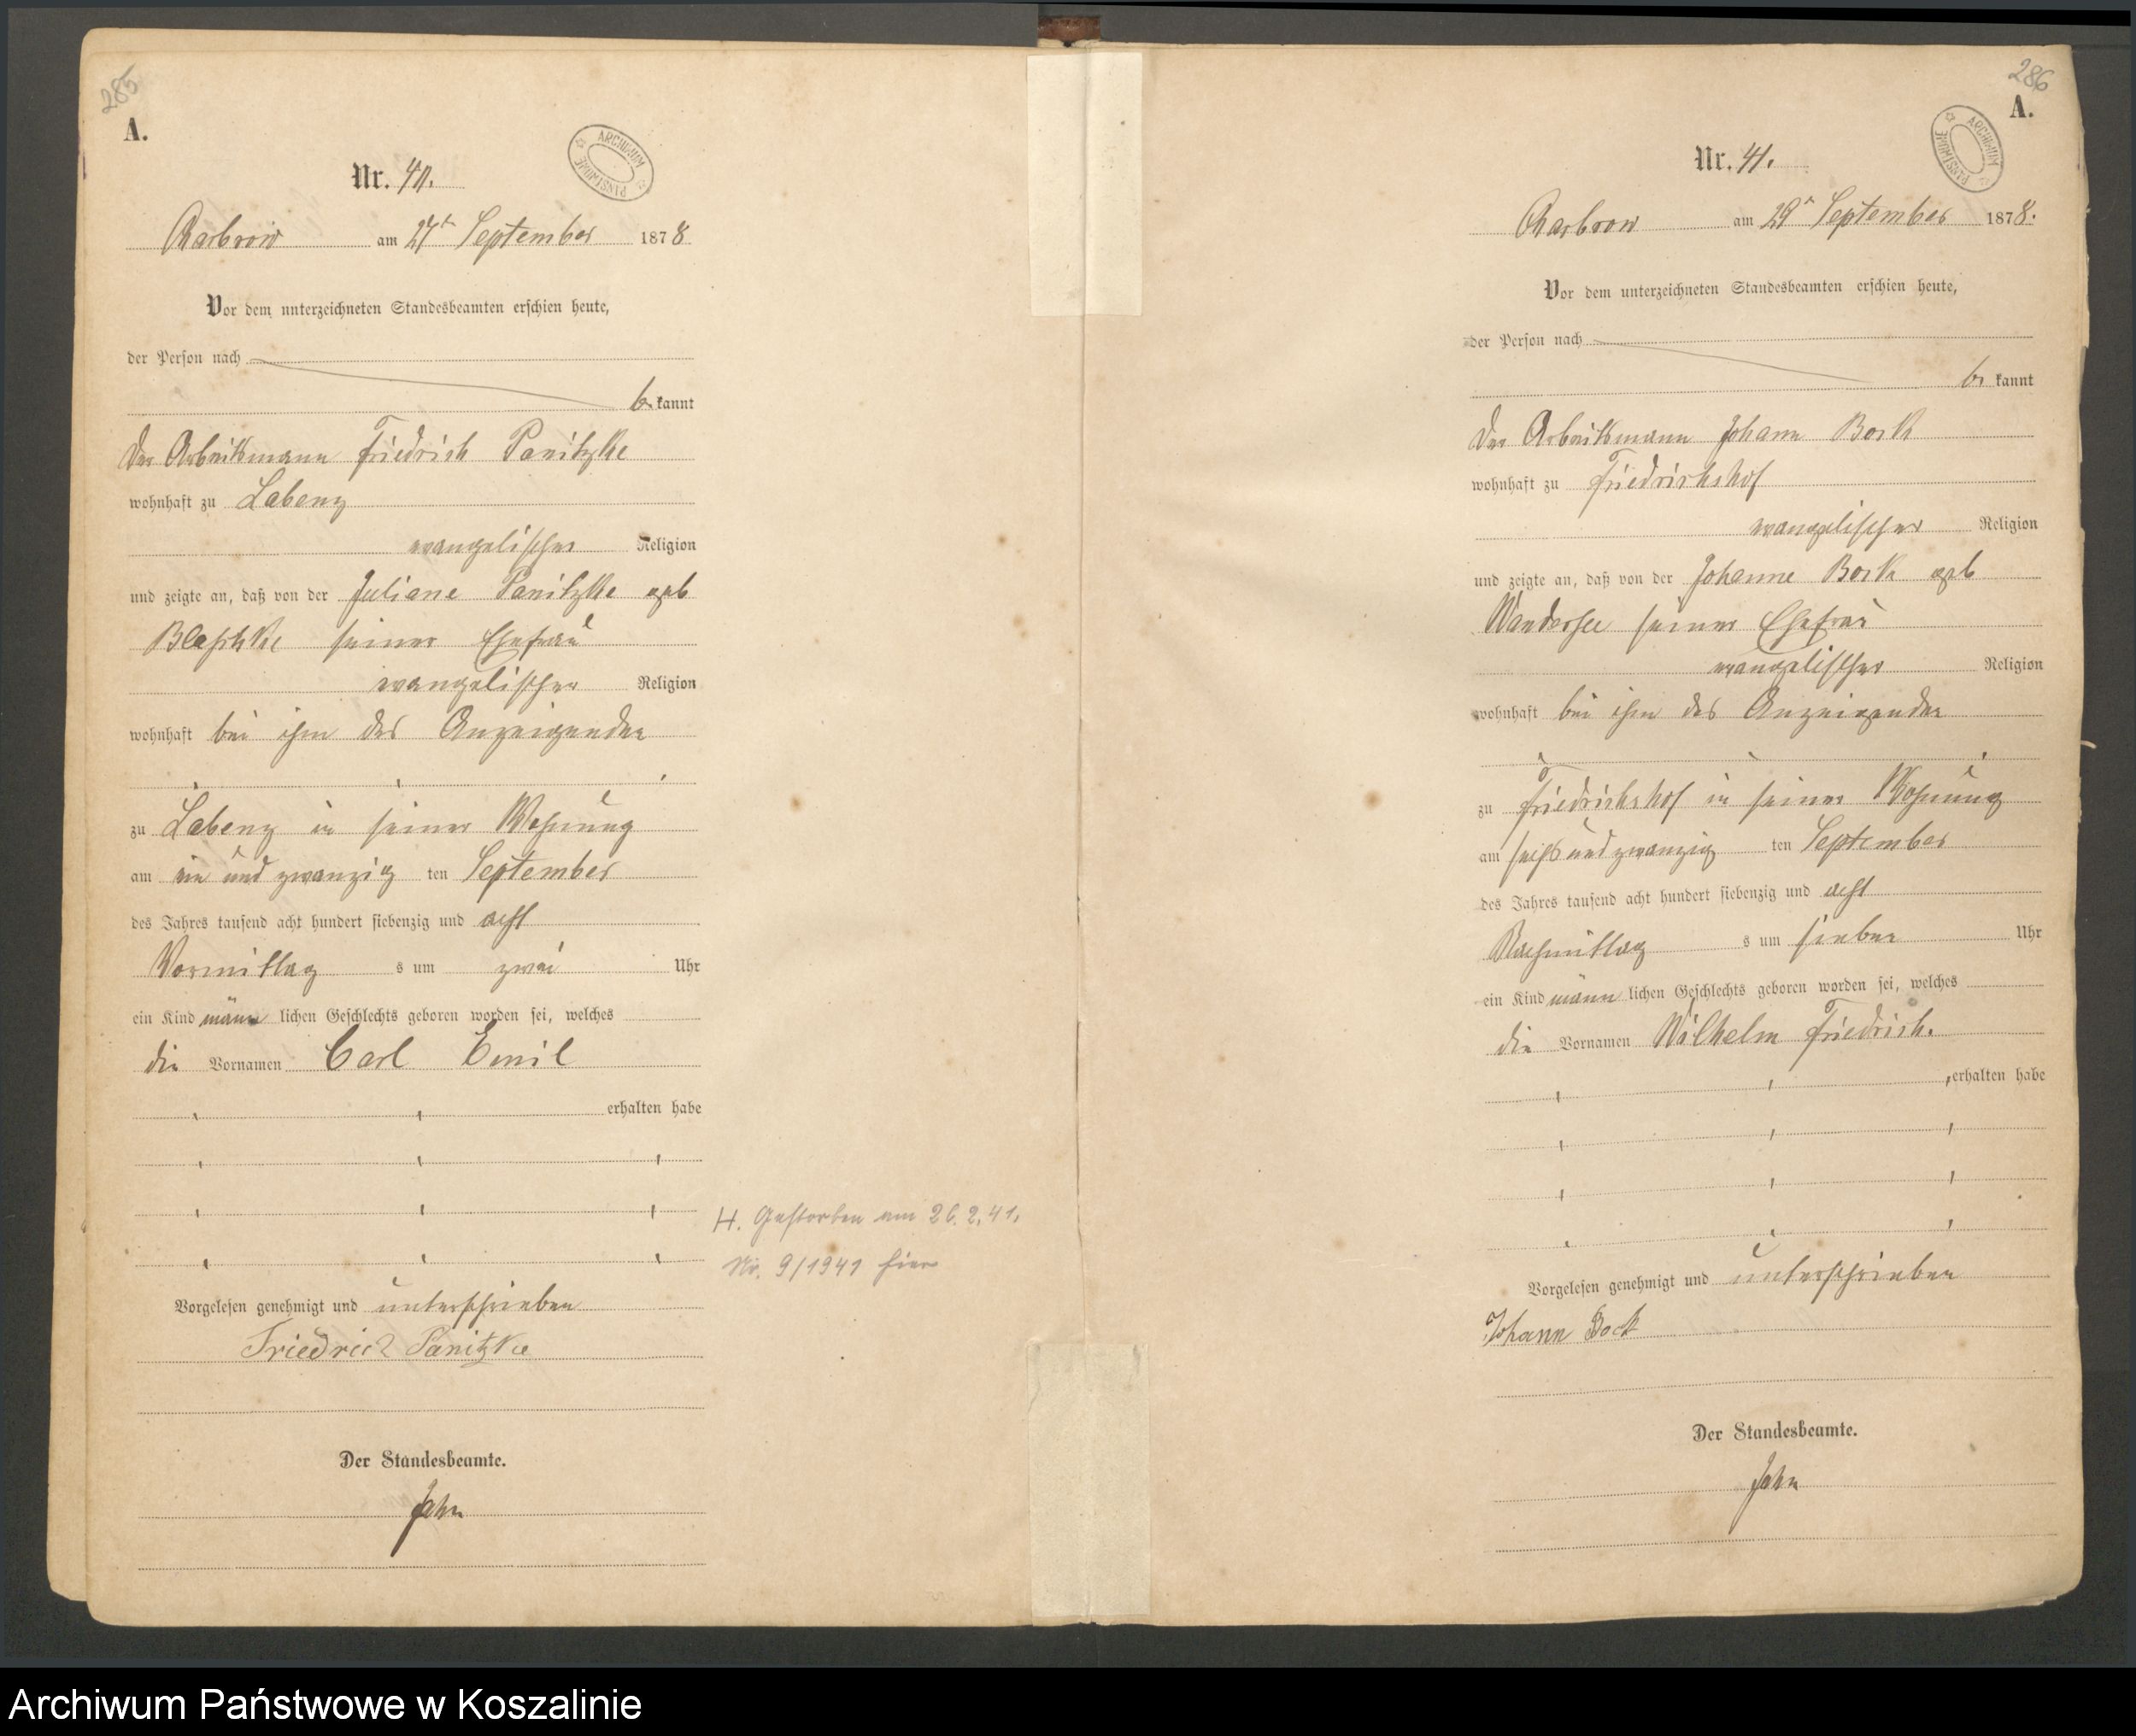 285
A.
ARCHIWUM PAŃSTWOWE
Nr. 40.
Charbrow am 27ten September 1878
Vor dem unterzeichneten Standesbeamten erschien heute,
der Person nach
be kannt
der Arbeitsmann Friedrich Panitzke
wohnhaft zu Labenz
evangelischer Religion
und zeigte an, daß von der Juliane Panitzke geb
Blaschke seiner Ehefrau
evangelischer Religion
wohnhaft bei ihm des Anzeigenden
zu Labenz in seiner Wohnung
am ein und zwanzig ten September
des Jahres tausend acht hundert siebenzig und acht
Vormittag s um zwei Uhr
ein Kind männ lichen Geschlechts geboren worden sei, welches
die Vornamen Carl Emil
erhalten habe
H. Gestorben am 26.2.41.
Nr. 9/1941 hier
Vorgelesen genehmigt und unterschrieben
Friedrich Panitzke
Der Standesbeamte.
Jahn
286
A.
ARCHIWUM PAŃSTWOWE
Nr. 41.
Charbrow am 29n September 1878.
Vor dem unterzeichneten Standesbeamten erschien heute,
der Person nach
be kannt
der Arbeitsmann Johann Bock
wohnhaft zu Friedrichshof
evangelischer Religion
und zeigte an, daß von der Johanne Bock geb
Wandersee seiner Ehefrau
evangelischer Religion
wohnhaft bei ihm des Anzeigenden
zu Friedrichshof in seiner Wohnung
am sechs und zwanzig ten September
des Jahres tausend acht hundert siebenzig und acht
Nachmittag s um sieben Uhr
ein Kind männ lichen Geschlechts geboren worden sei, welches
die Vornamen Wilhelm Friedrich.
erhalten habe
Vorgelesen genehmigt und unterschrieben
Johann Bock
Der Standesbeamte.
Jahn
Archiwum Państwowe w Koszalinie